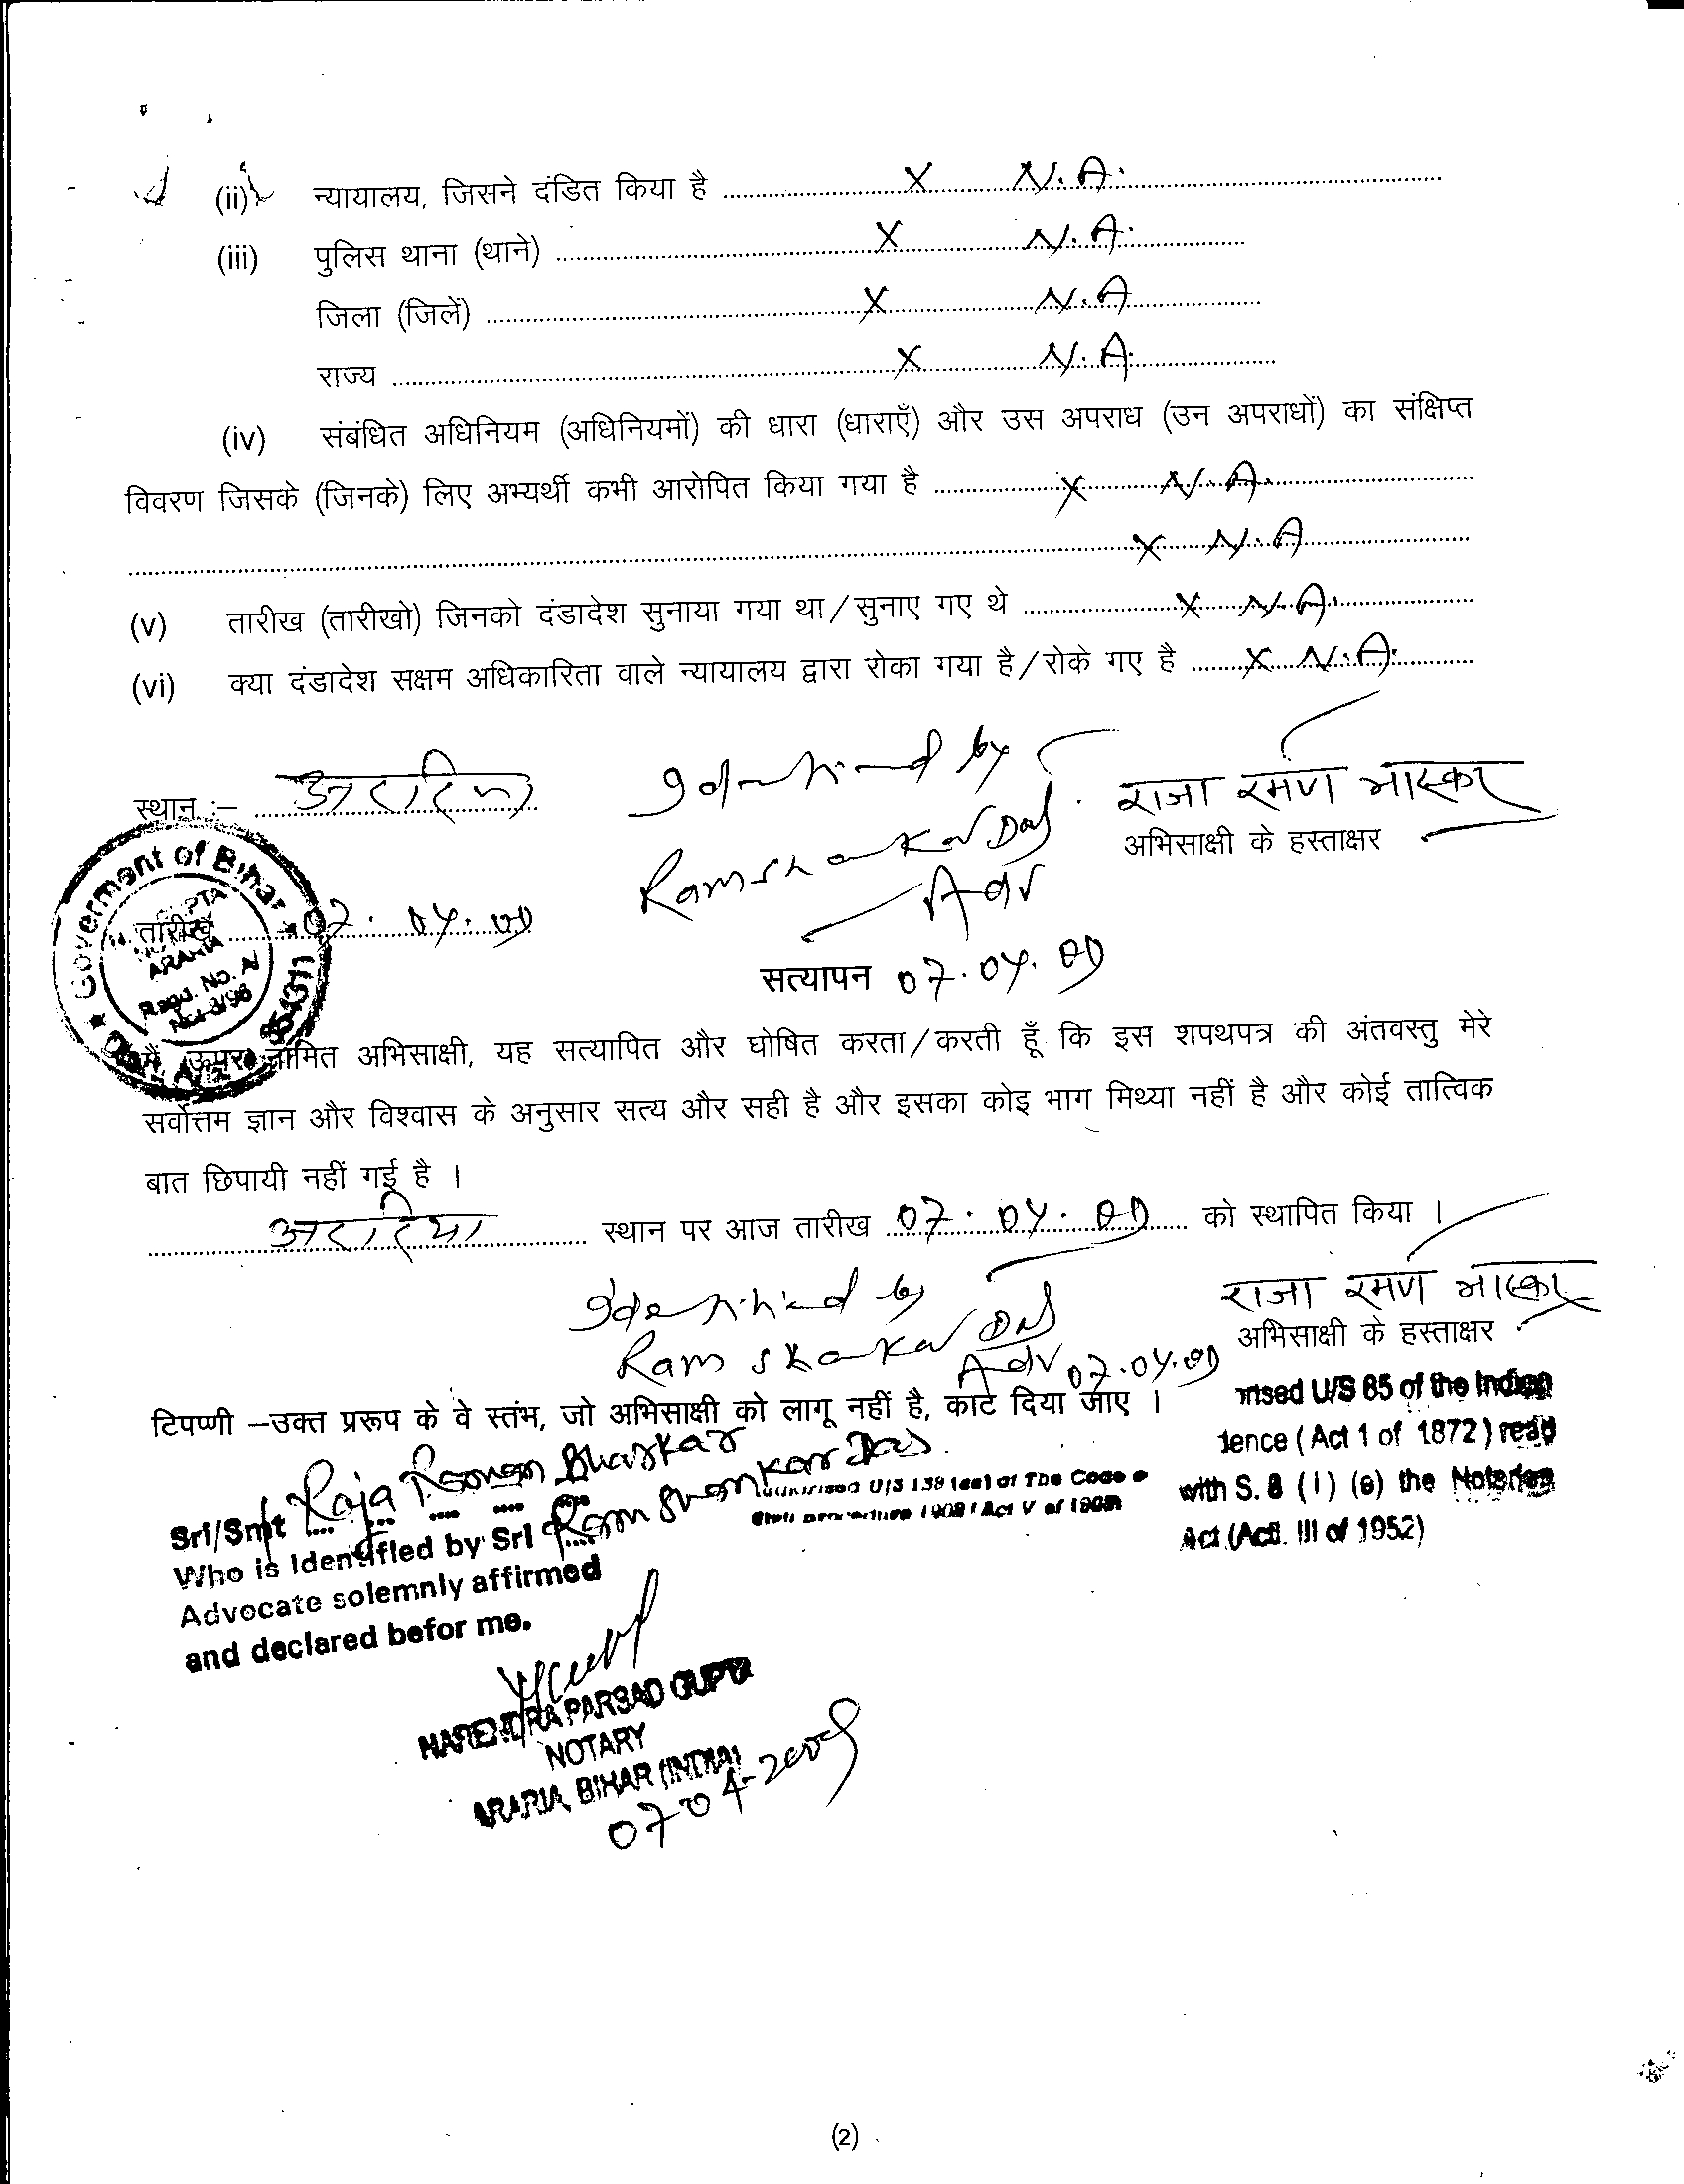 (ii) न्यायालय, जिसने दंडित किया है .......... X N.A.
(iii) पुलिस थाना (थाने) .......... X N.A.
जिला (जिलें) .......... X N.A
राज्य .......... X N.A.
(iv) संबंधित अधिनियम (अधिनियमों) की धारा (धाराएँ) और उस अपराध (उन अपराधों) का संक्षिप्त
विवरण जिसके (जिनके) लिए अभ्यर्थी कभी आरोपित किया गया है .......... X N.A.
.......... X N.A
(v) तारीख (तारीखो) जिनको दंडादेश सुनाया गया था/सुनाए गए थे .......... X N.A.
(vi) क्या दंडादेश सक्षम अधिकारिता वाले न्यायालय द्वारा रोका गया है/रोके गए है .......... X N.A.
स्थान :– अररिया
Identified by
Ramshankar Das
Adv
राजा रमण भास्कर
अभिसाक्षी के हस्ताक्षर
Government of Bihar
ARARIA
Regd. No.
854311
तारीख 07.04.09
सत्यापन 07.04.09
मैं, ऊपर नामित अभिसाक्षी, यह सत्यापित और घोषित करता/करती हूँ कि इस शपथपत्र की अंतवस्तु मेरे
सर्वोत्तम ज्ञान और विश्वास के अनुसार सत्य और सही है और इसका कोइ भाग मिथ्या नहीं है और कोई तात्विक
बात छिपायी नहीं गई है ।
अररिया स्थान पर आज तारीख 07.04.09 को स्थापित किया ।
Identified by
Ram Shankar Das
Adv 07.04.09
राजा रमण भास्कर
अभिसाक्षी के हस्ताक्षर
टिपप्णी –उक्त प्ररूप के वे स्तंभ, जो अभिसाक्षी को लागू नहीं है, काट दिया जाए ।
U/S 85 of the Indian
(Act 1 of 1872) read
with S. 8 (1) (e) the Notaries
Act (Act. III of 1952)
U/S 139 of The Code
1908 (Act V of 1908)
Sri/Smt Raja Raman Bhaskar
Who is Identified by Sri Ram Shankar Das
Advocate solemnly affirmed
and declared befor me.
HARENDRA PARSAD GUPTA
NOTARY
ARARIA, BIHAR (INDIA)
07-04-2009
(2)